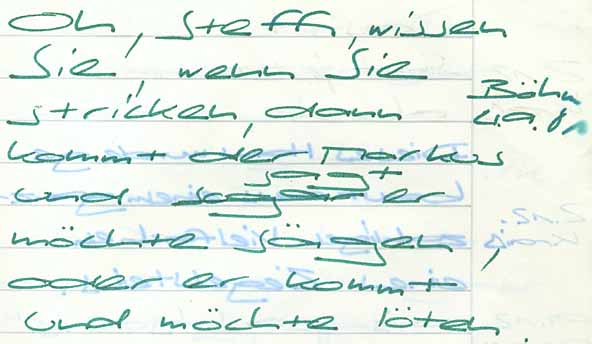 Oh, Steffi, wissen
Sie, wenn Sie
Böhm
stricken, dann 4.9.8,
kommt der Markus
sagt
und er
möchte sägen,
oder er kommt
und möchte löten.